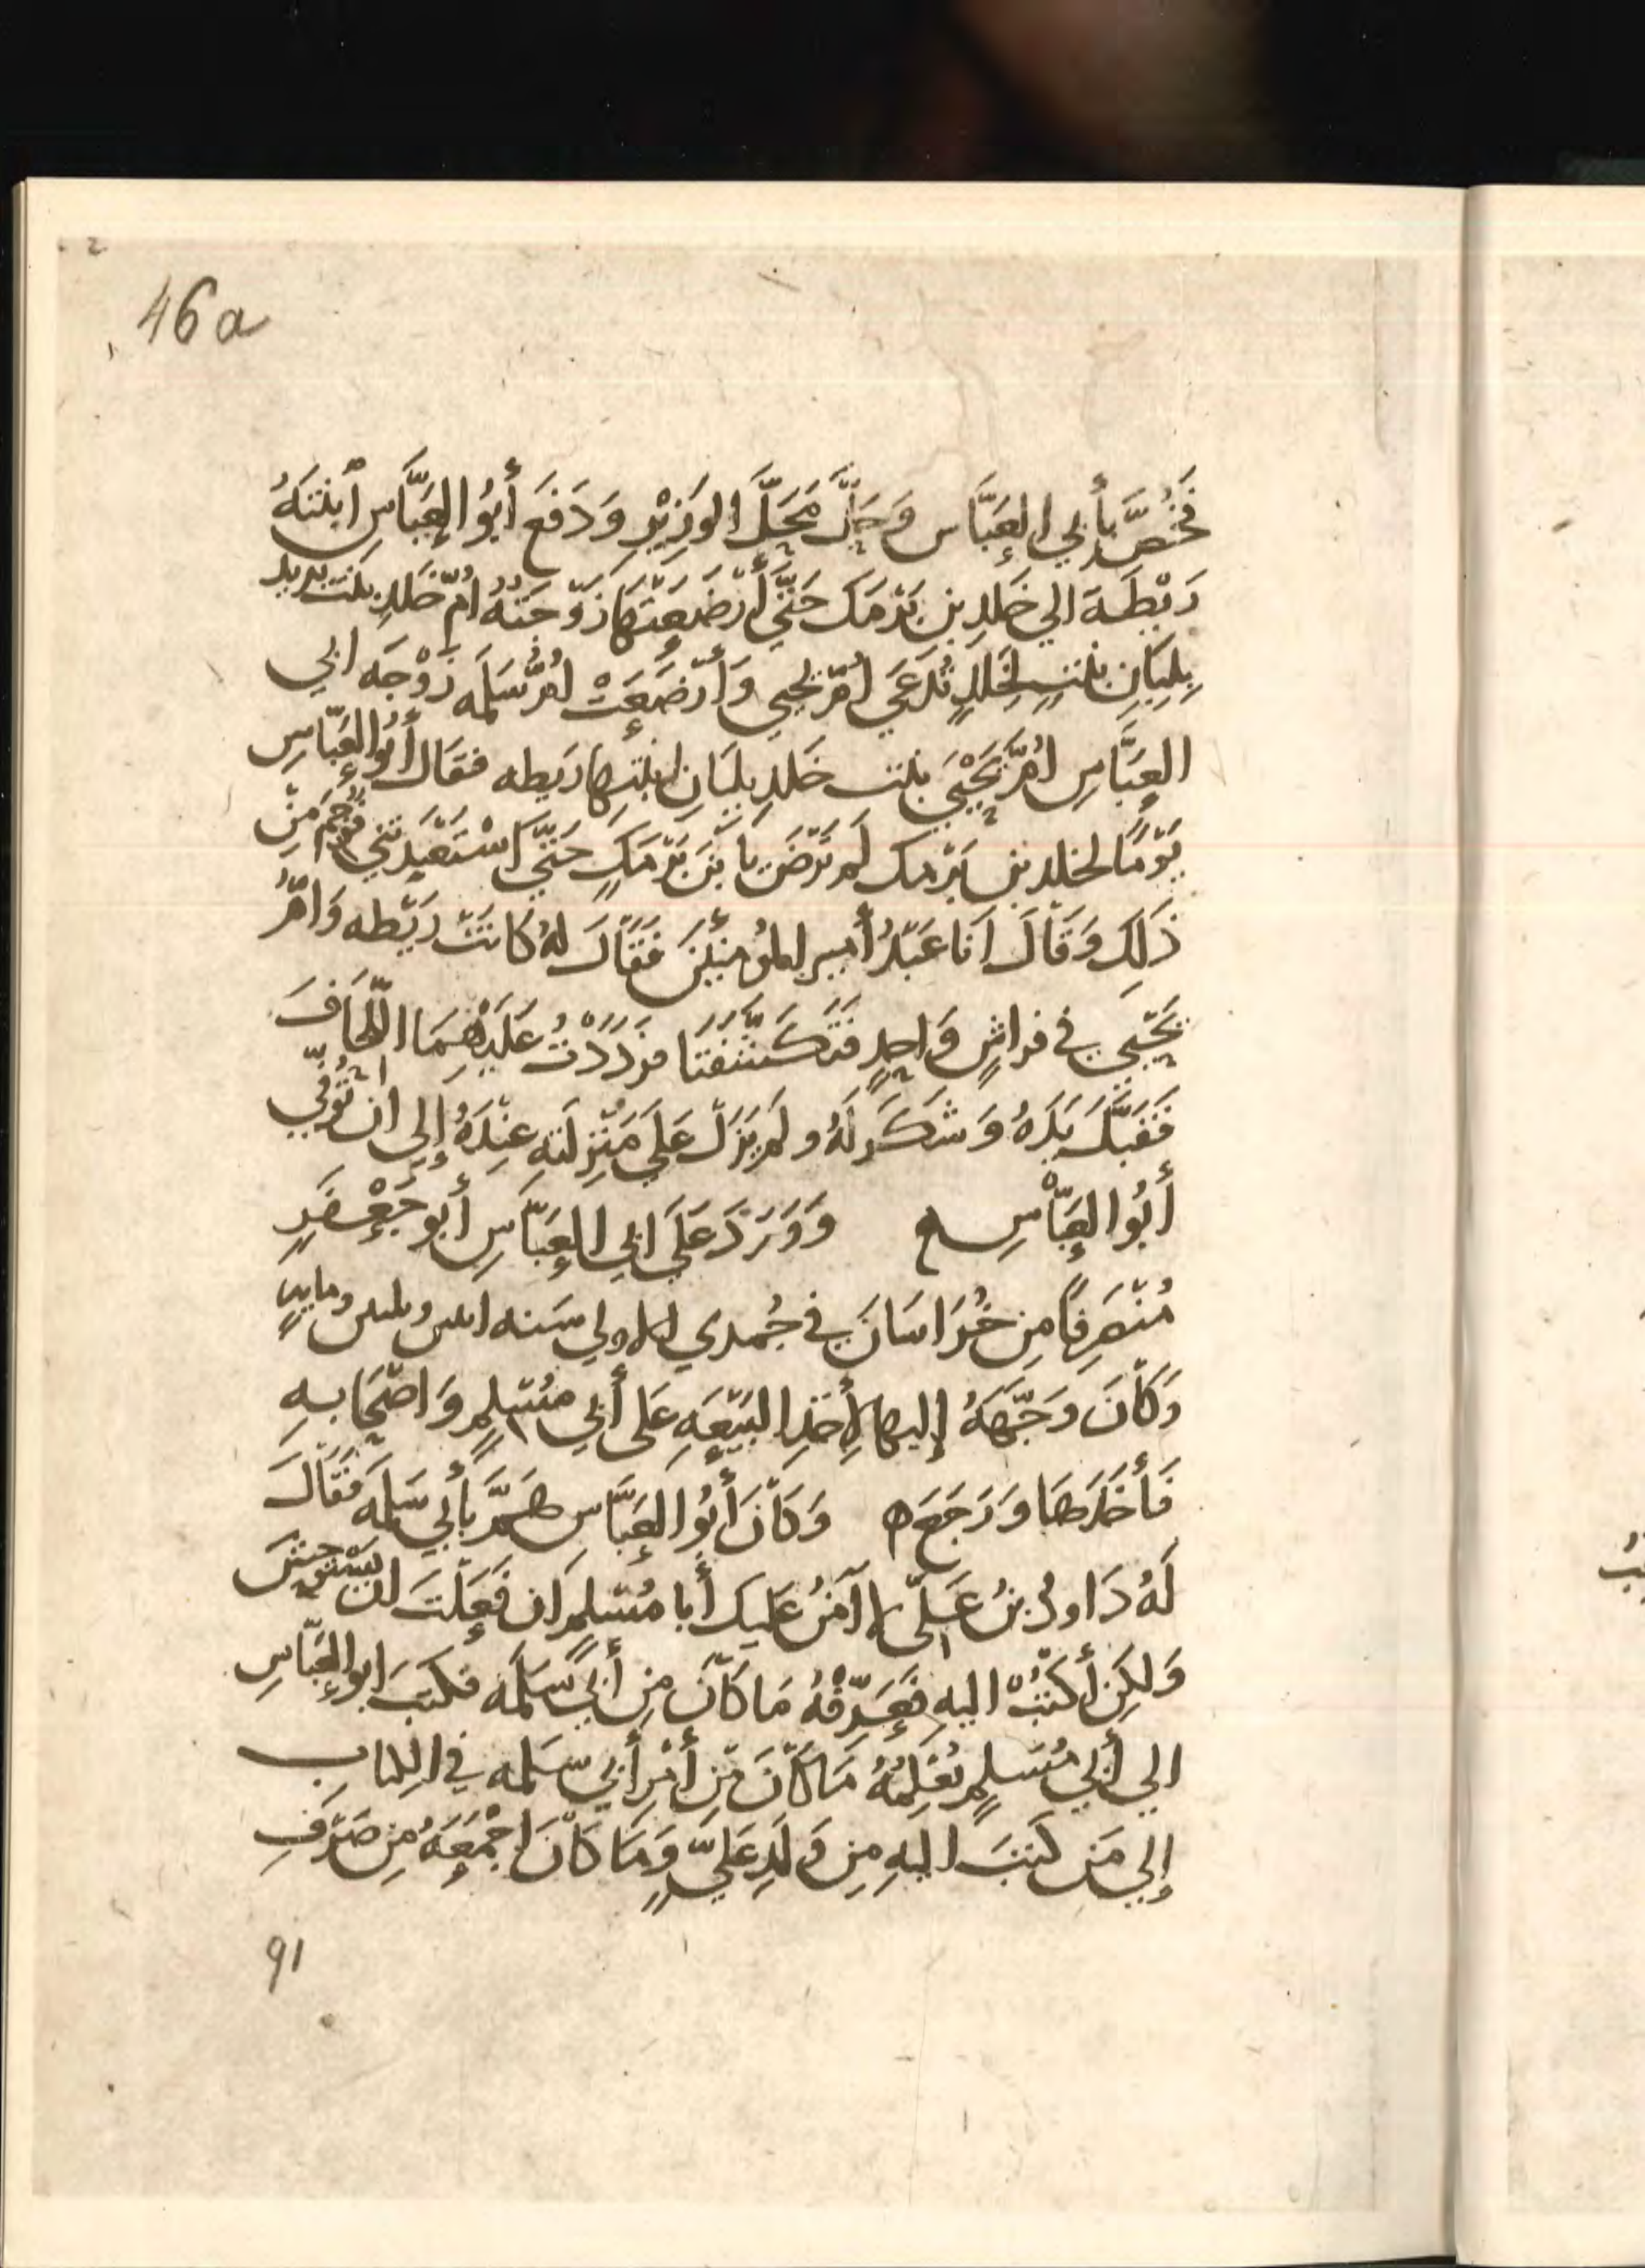 46a
فَخُصَّ بأَبي العَبَّاس وَحَلَّ مَحَلَّ الوَزِيْرِ وَدَفَعَ أَبُو العَبَّاس اَبْنَتَهُ
رَيْطَة الي خَلدِ بنِ بَرْمَك حَتَّي أَرْضَعَتْهَا زَوْجَتُهُ اُمّ خَلدِ بنت يزيد
بِلِبَانِ بنتٍ لِخَلدٍ تُدْعَي أُمّ يحيي وَأَرْضَعَتْ اُمُّ سَلَمَه زَوْجَه ابي
العبَّاسِ اُمَّ يَحْيَيَ بنت خَلدِ بِلبَانِ ابنتِهَا رَيطه فقال أَبُو العَبَّاسِ
يَوْمًا لخلدِ بنِ بَرْمك لم تَرْضَ يا بْنَ بَرْمَكٍ حَتَّي اَسْتَعْبَدْتَنِي فَوَجَمَ مِنْ
ذَلِكَ وَقَالَ اَنا عَبْدُ أَمير المُؤمِنِيْنَ فَقَالَ لهُ كَانَتْ رَيْطه وَاُمُّ
يَحْيَي في فراشٍ وَاحِدٍ فَتَكَشَّفَتَا فَرَدَدْتُ عَلَيْهِمَا اللِّحَافَ
فَقَبَّلَ يَدَهُ وَشَكَرَ لَهُ ولم يَزَلْ عَلَي مَنْزِلَتهِ عِنْدَهُ إلي ان تُوُفّي
أَبُوا العَبَّاسِ ه وَوَرَدَ عَلَي ابي العبَّاسِ أَبو جَعْفَرٍ
مُنْصَرِفًا مِن خُرَاسَانَ في جُمدي الاولي سَنه اثنتين وثلثين ومايهٍ
وَكَانَ وَجَّهَهُ إليها لأَخذِ البَيْعَهِ عَلى أَبي مُسْلِمٍ وَاصْحَابِهِ
فَأَخَذَهَا وَرَجَعَ ه وَكَانَ أَبُو العَبَّاس هَمَّ بأَبي سَلمَه فَقَالَ
لَهُ دَاودُ بنُ عَلِيّ لا آمَنُ عَليك أَبا مُسْلِمٍ ان فَعَلْتَ ان يَسْتَوحِشَ
وَلكِن أَكْتُبْ اليهِ فَعَرِّفْهُ مَا كَانَ مِن أَبِي سَلَمَه فكتَبَ ابو العَبّاسِ
الي أَبي مُسْلِمٍ يُعْلِمُهُ مَا كَانَ مِن أَمْرِ أَبِي سَلَمه في الكتاب
إلي مَن كَتَبَ اليهِ مِن وَلَدِ عَلِيٍّ وَمَا كَانَ اَجْمَعَهُ مِن صَرْفِ
91